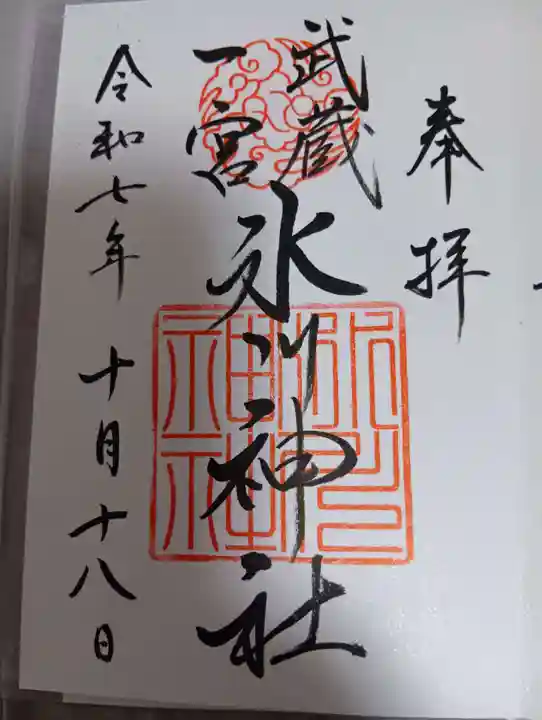 奉拝
武蔵
一宮
氷川神社
令和七年 十月十八日
氷川
神社